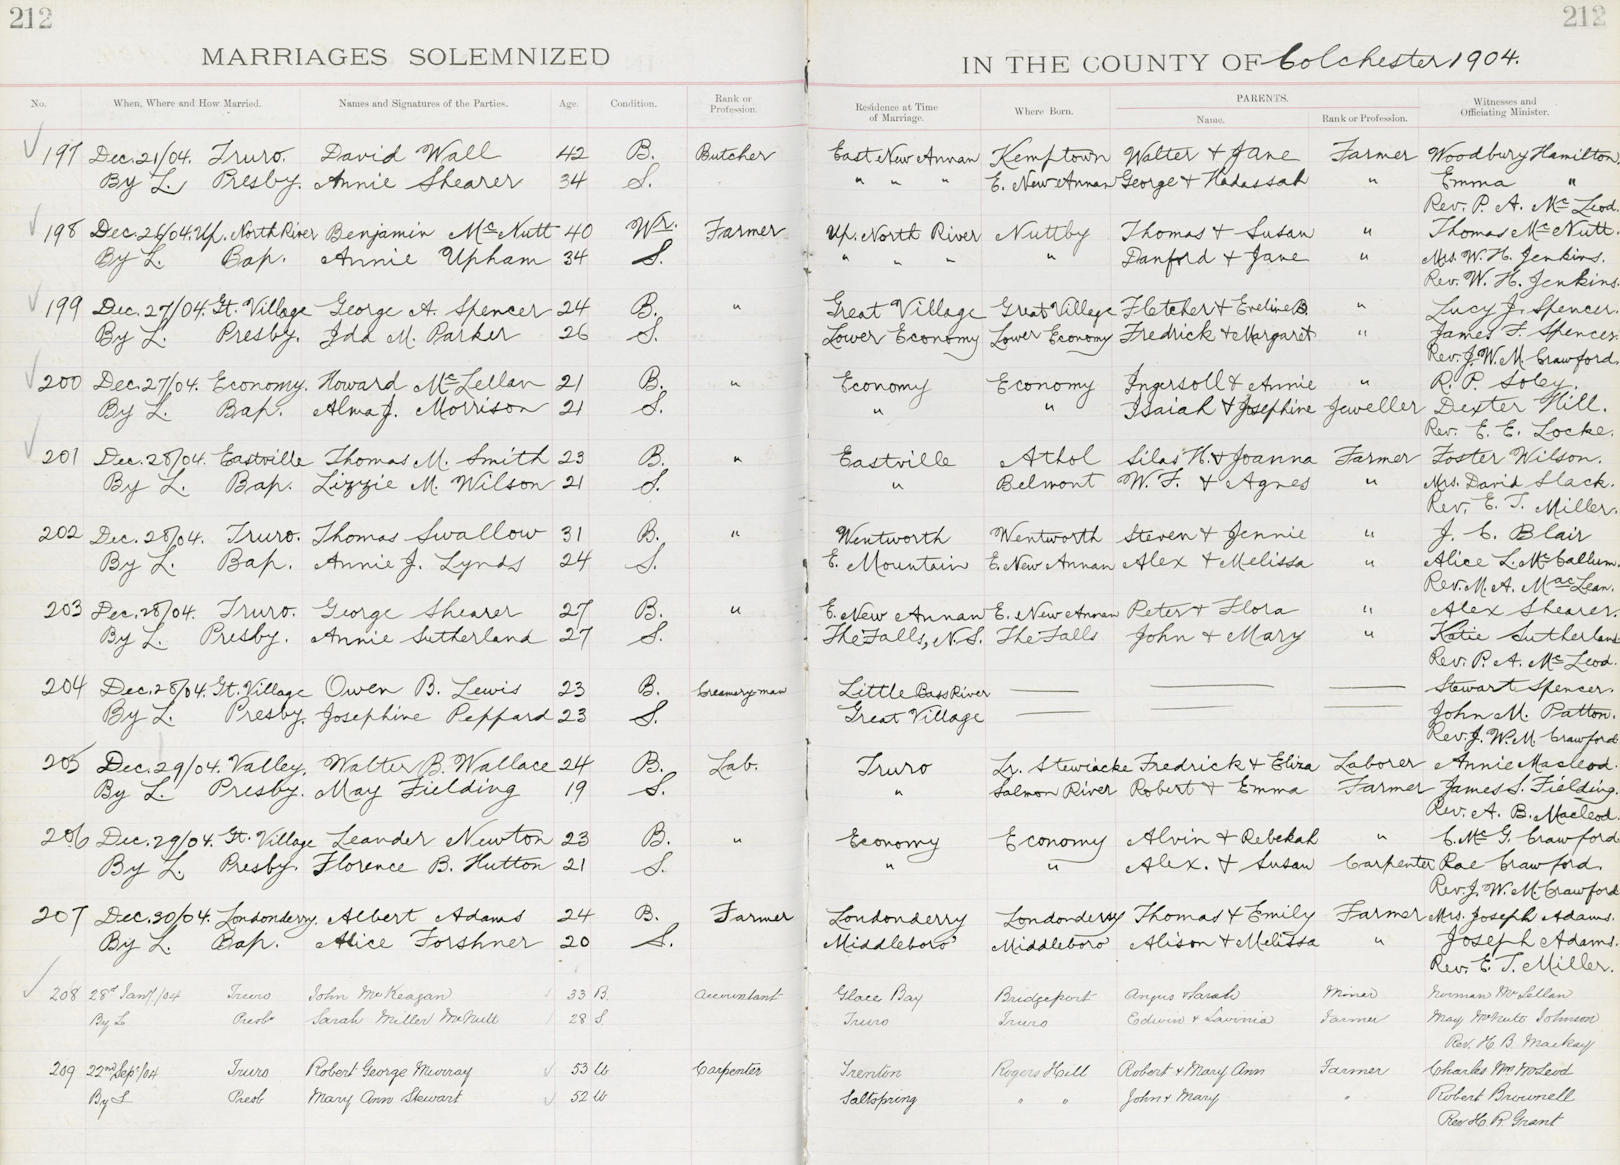 212
212
MARRIAGES SOLEMNIZED
IN THE COUNTY OF Colchester 1904.
No. When, Where and How Married. Names and Signatures of the Parties. Age. Condition. Rank or Profession. Residence at Time of Marriage. Where Born. PARENTS. Name. Rank or Profession. Witnesses and Officiating Minister.
197 Dec. 21/04. Truro. David Wall 42 B. Butcher East New Annan Kemptown Walter & Jane Farmer Woodbury Hamilton.
By L. Presby. Annie Shearer 34 S. " " " E. New Annan George & Hadassah " Emma "
Rev. P. A. McLeod.
198 Dec. 26/04. Up. North River Benjamin McNutt 40 Wr. Farmer Up. North River Nuttby Thomas & Susan " Thomas McNutt.
By L. Bap. Annie Upham 34 S. " " " " Danford & Jane " Mrs. W. H. Jenkins.
Rev. W. H. Jenkins.
199 Dec. 27/04. Gt. Village George A. Spencer 24 B. " Great Village Great Village Fletcher & Eveline B. " Lucy J. Spencer.
By L. Presby. Ida M. Parker 26 S. Lower Economy Lower Economy Fredrick & Margaret " James F. Spencer.
Rev. J. W. M. Crawford.
200 Dec. 27/04. Economy. Howard McLellan 21 B. " Economy Economy Ingersoll & Annie " R. P. Soley.
By L. Bap. Alma J. Morrison 21 S. " " Isaiah & Josephine Jeweller Dexter Hill.
Rev. E. E. Locke.
201 Dec. 28/04. Eastville Thomas M. Smith 23 B. " Eastville Athol Silas H. & Joanna Farmer Foster Wilson.
By L. Bap. Lizzie M. Wilson 21 S. " Belmont W. F. & Agnes " Mrs. David Slack.
Rev. E. T. Miller.
202 Dec. 28/04. Truro. Thomas Swallow 31 B. " Wentworth Wentworth Steven & Jennie " J. C. Blair
By L. Bap. Annie J. Lynds 24 S. E. Mountain E. New Annan Alex & Melissa " Alice L. McCallum.
Rev. M. A. MacLean.
203 Dec. 28/04. Truro. George Shearer 27 B. " E. New Annan E. New Annan Peter & Flora " Alex Shearer.
By L. Presby. Annie Sutherland 27 S. The Falls, N.S. The Falls John & Mary " Katie Sutherland
Rev. P. A. McLeod.
204 Dec. 28/04. Gt. Village Owen B. Lewis 23 B. Creamery man Little Bass River Stewart Spencer.
By L. Presby. Josephine Peppard 23 S. Great Village John M. Patton.
Rev. J. W. M. Crawford
205 Dec. 29/04. Valley. Walter B. Wallace 24 B. Lab. Truro Lr. Stewiacke Fredrick & Eliza Laborer Annie Macleod.
By L. Presby. May Fielding 19 S. " Salmon River Robert & Emma Farmer James S. Fielding.
Rev. A. B. Macleod.
206 Dec. 29/04. Gt. Village Leander Newton 23 B. " Economy Economy Alvin & Rebekah " C. McG. Crawford
By L. Presby. Florence B. Hutton 21 S. " " Alex. & Susan Carpenter Rae Crawford.
Rev. J. W. M. Crawford
207 Dec. 30/04. Londonderry. Albert Adams 24 B. Farmer Londonderry Londonderry Thomas & Emily Farmer Mrs. Joseph Adams.
By L. Bap. Alice Forshner 20 S. Middleboro' Middleboro' Alison & Melissa " Joseph Adams.
Rev. E. T. Miller.
208 28th Jany/04 Truro John McKeagan 33 B. Accountant Glace Bay Bridgeport Angus & Sarah Miner Norman McLellan
By L Presb. Sarah Miller McNutt 28 S. Truro Truro Edwin & Lavinia Farmer May McNutt Johnson
Rev. H. B. Mackay
209 22nd Sept/04 Truro Robert George Murray 53 W Carpenter Trenton Rogers Hill Robert & Mary Ann Farmer Charles Wm McLeod
By L Presb Mary Ann Stewart 52 W Saltspring " " John & Mary " Robert Brownell
Rev H. R. Grant